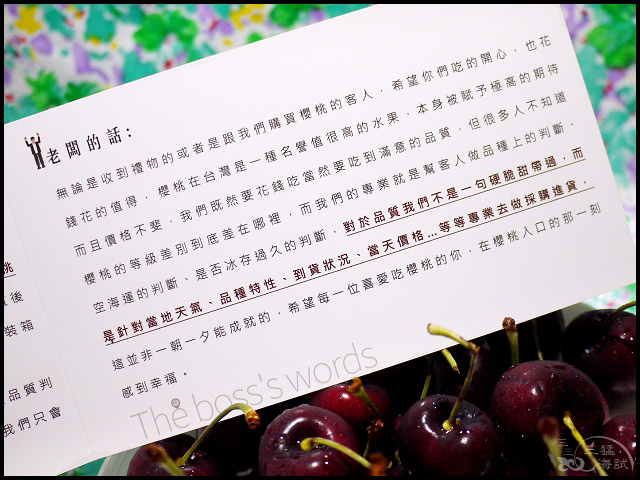 老闆的話:
無論是收到禮物的或者是跟我們購買櫻桃的客人，希望你們吃的開心，也花
錢花的值得，櫻桃在台灣是一種名譽值很高的水果，本身被賦予極高的期待
而且價格不斐，我們既然要花錢吃當然要吃到滿意的品質，但很多人不知道
櫻桃的等級差別到底差在哪裡，而我們的專業就是幫客人做品種上的判斷、
空海運的判斷、是否冰存過久的判斷，對於品質我們不是一句硬脆甜帶過，而
是針對當地天氣、品種特性、到貨狀況、當天價格...等等專業去做採購進貨，
這並非一朝一夕能成就的，希望每一位喜愛吃櫻桃的你，在櫻桃入口的那一刻
感到幸福。
The boss's words
桃
後
裝箱
品質判
我們只會
三猛
海試